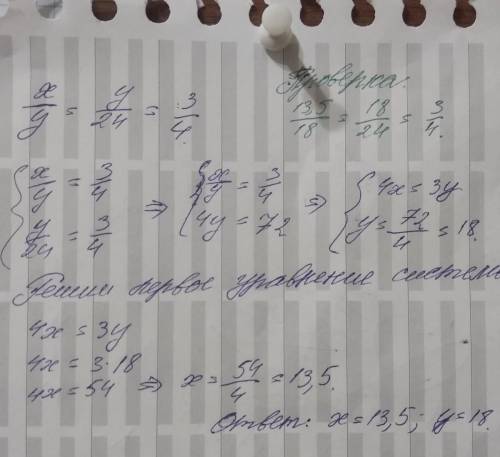 x/y = y/24 = 3/4.
Проверка:
13,5/18 = 18/24 = 3/4.
{ x/y = 3/4 ⇒ { x/y = 3/4 ⇒ { 4x = 3y
y/24 = 3/4 4y = 72 y = 72/4 = 18.
Решим первое уравнение систем
4x = 3y
4x = 3·18
4x = 54 ⇒ x = 54/4 = 13,5.
Ответ: x = 13,5; y = 18.